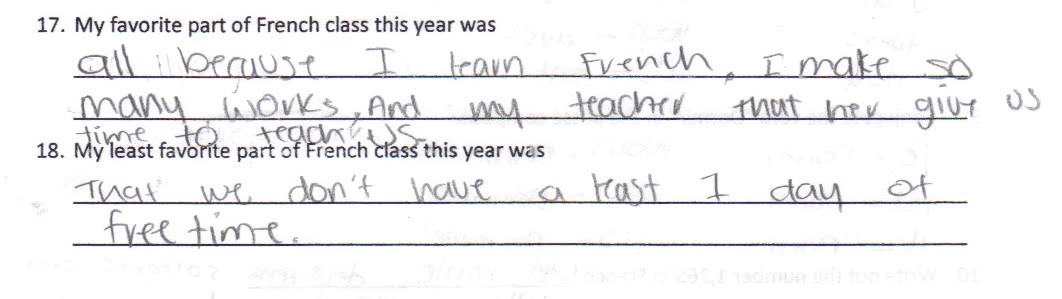 17. My favorite part of French class this year was
all because I learn French, I make so
many works, And my teacher that her give us
time to teach us
18. My least favorite part of French class this year was
That we don't have a least 1 day of
free time.